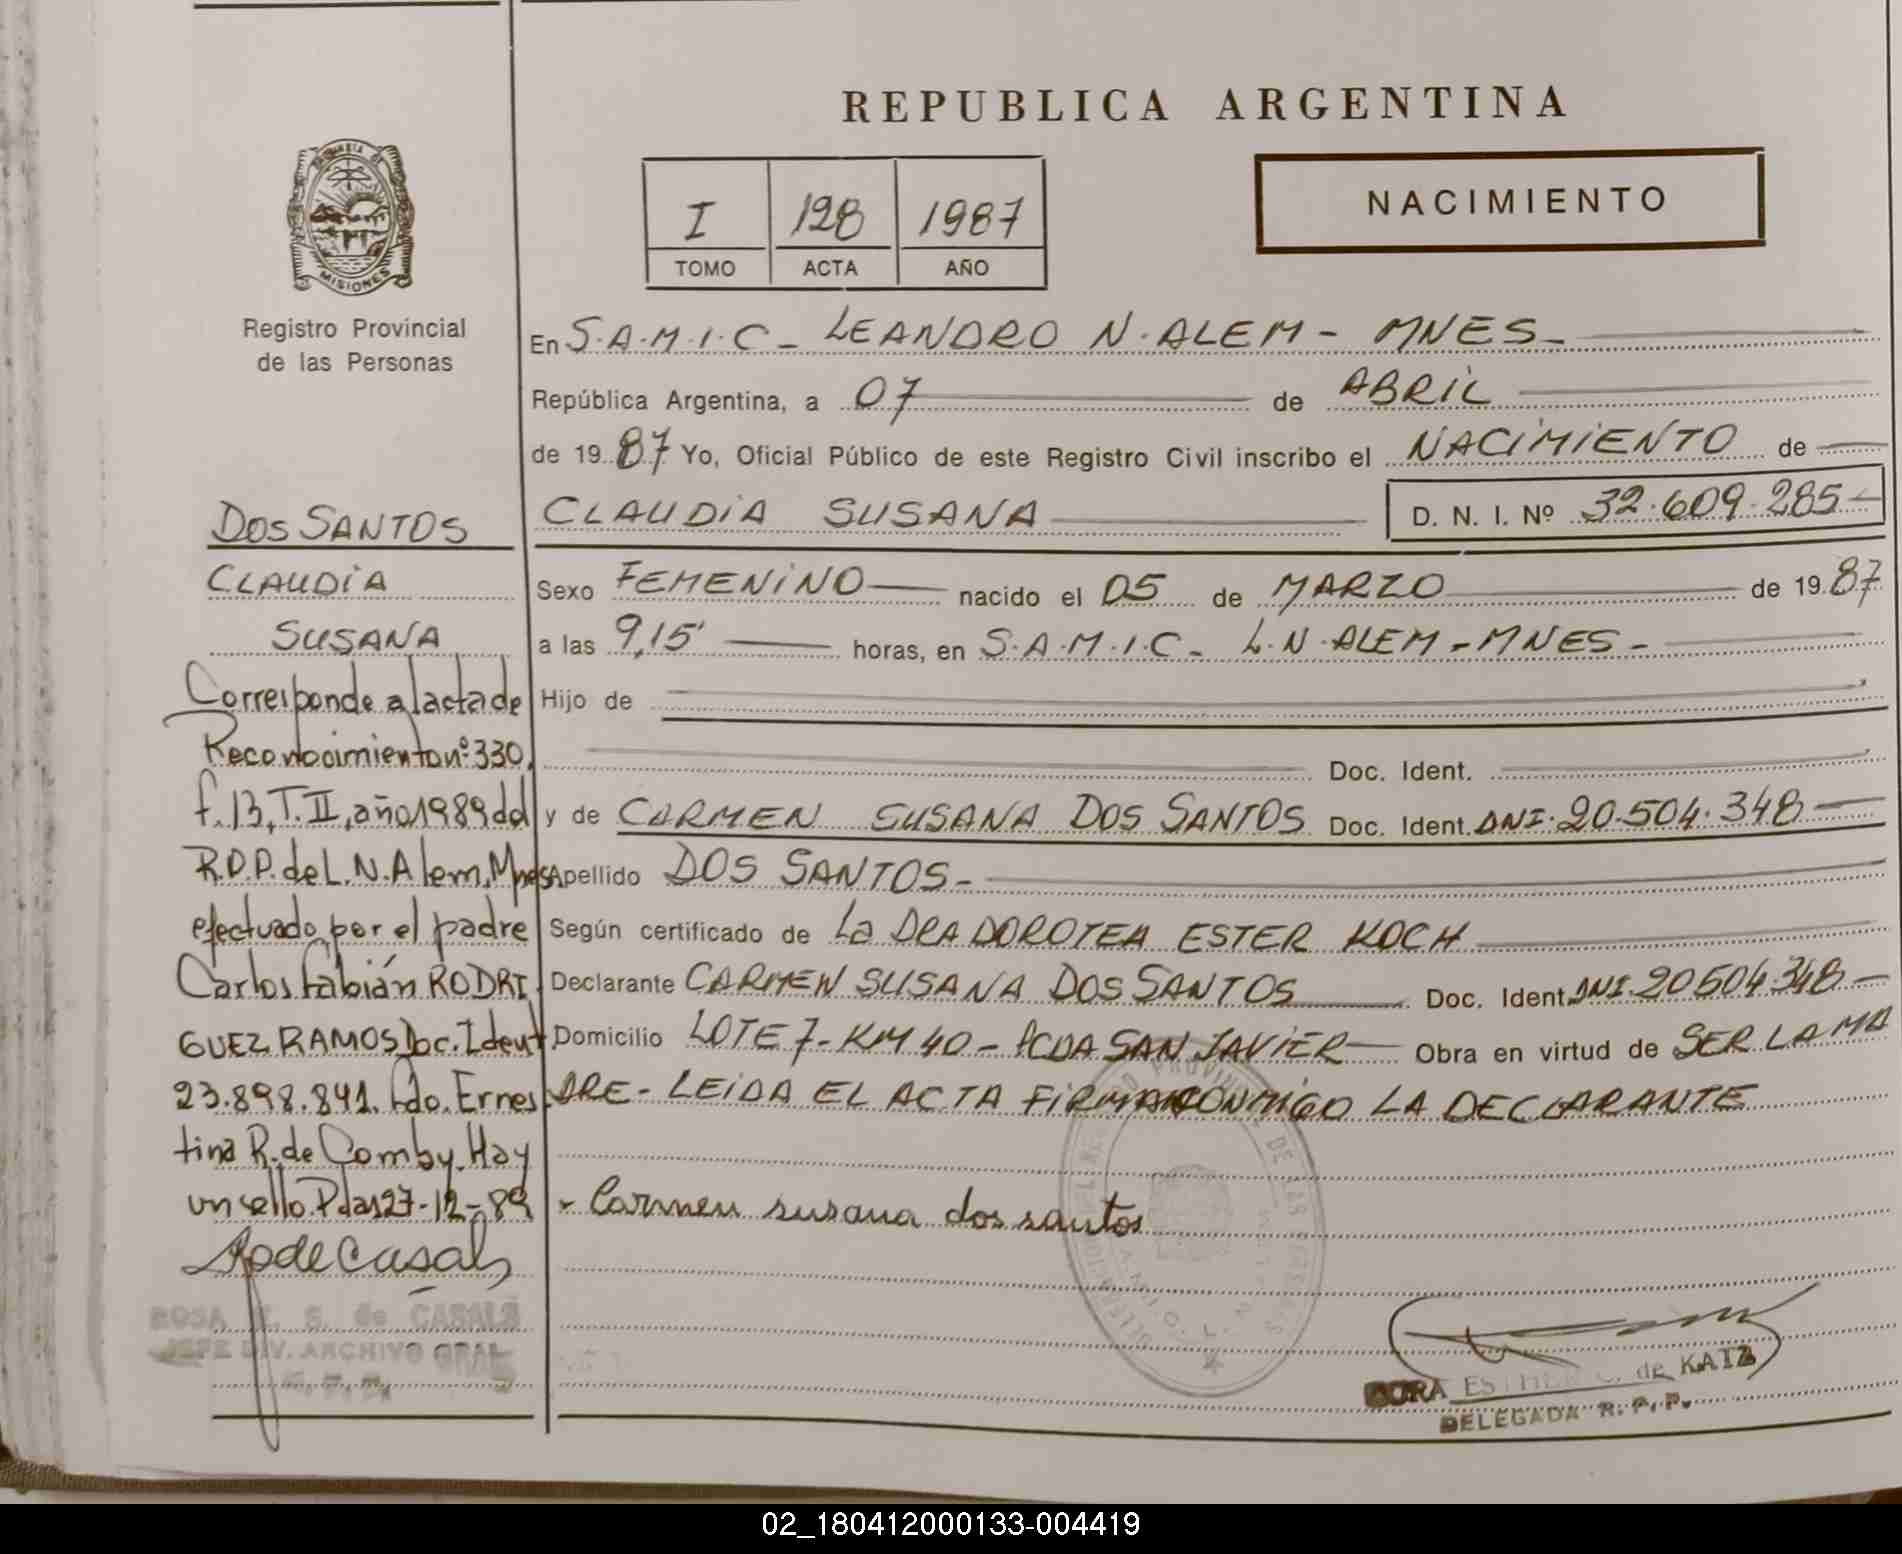 REPUBLICA ARGENTINA
NACIMIENTO
I 128 1987
TOMO ACTA AÑO
MISIONES
Registro Provincial
de las Personas
En S.A.M.I.C - LEANDRO N. ALEM - MNES -
República Argentina, a 07 de ABRIL
de 19 87 Yo, Oficial Público de este Registro Civil inscribo el NACIMIENTO de
CLAUDIA SUSANA D. N. I. Nº 32.609.285
Sexo FEMENINO nacido el 05 de MARZO de 19 87
a las 9,15' horas, en S.A.M.I.C - L.N. ALEM - MNES -
Hijo de
Doc. Ident.
y de CARMEN SUSANA DOS SANTOS Doc. Ident. DNI. 20.504.348
Apellido DOS SANTOS -
Según certificado de La DRA DOROTEA ESTER KOCH
Declarante CARMEN SUSANA DOS SANTOS Doc. Ident. DNI. 20504.348
Domicilio LOTE 7 - KM 40 - PCDA SAN JAVIER Obra en virtud de SER LA MA
DRE - LEIDA EL ACTA FIRMA CONMIGO LA DECLARANTE
Carmen susana dos santos
de KATZ
DELEGADA R. P. P.
DOS SANTOS
CLAUDIA
SUSANA
Corresponde al acta de
Reconocimiento nº 330,
f. 13, T. II, año 1989 dd
R.P.P. de L. N. Alem, Mnes,
efectuado por el padre
Carlos Fabián RODRI
GUEZ RAMOS Doc. Ident
23.898.841. Fdo. Ernes
tina R. de Comby. Hay
un sello. Pdas 27-12-89
ROSA E. S. de CASALS
JEFE DIV. ARCHIVO GRAL
R. P. P.
02_180412000133-004419